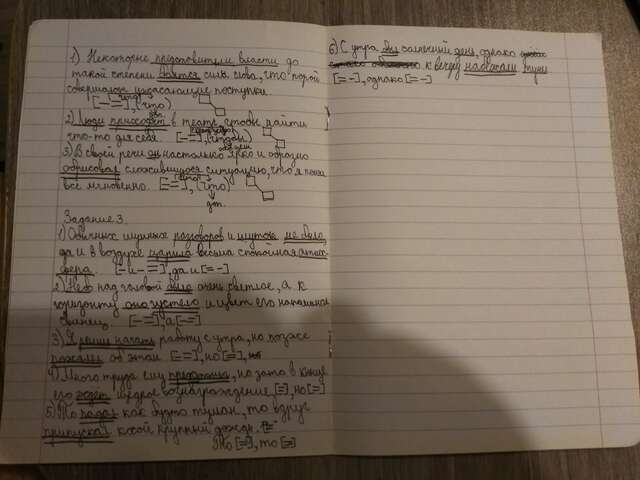 1) Некоторые представители власти до
такой степени боятся силы слова, что порой
совершают ужасающие поступки.
[- =], (что)
2) Люди приходят в театр, чтобы найти
что-то для себя. [- =], (чтобы)
3) В своей речи он настолько ярко и образно
обрисовал сложившуюся ситуацию, что я понял
все мгновенно. [- =], (что)
Задание 3.
1) Обычных шумных разговоров и шуток не было,
да и в воздухе царила весьма спокойная атмос-
фера. [- и - =], да и [= -]
2) Небо над головой было очень светлое, а к
горизонту оно густело и цвет его напоминал
свинец. [- =], а [- =]
3) Я решил начать работу с утра, но позже
пожалел об этом [- =], но [=],
4) Много труда ему предстояло, но зато в конце
его ждет щедрое вознаграждение [=], но [=]
5) То падал как будто туман, то вдруг
припускал косой крупный дождь.
То [=-], то [=-]
6) С утра был солнечный день, однако
к вечеру набежали тучи
[= -], однако [= -]